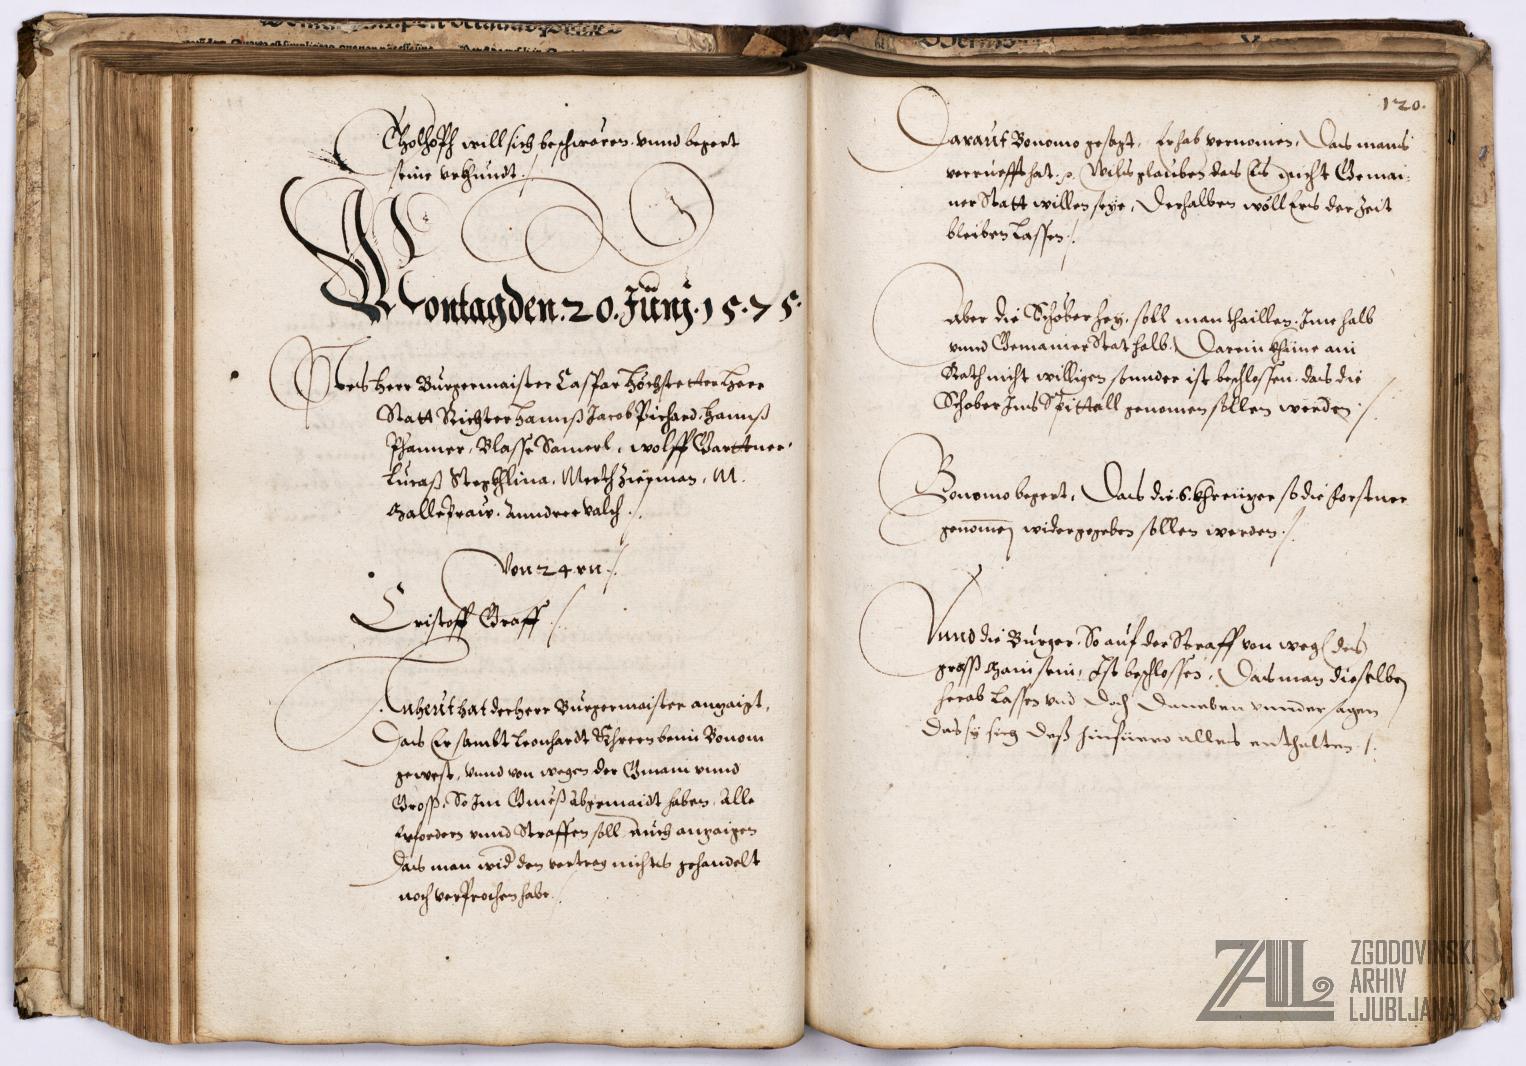 Tholhopff will sich beschwären vnnd begert
seine vrkhundt ./.
Montag den .20. Junj .1575.
Herr Burgermaister Caspar Höchstetter Herr
Statt Richter Hannß Jacob Pichard, Hannß
Phanner, Blasse Samerl, Wolff Garttner,
Lucaß Stepchlina, Merth Ziegman, M.
Galle Andree Valch ./.
Von 24 rn ./.
Cristoff Graff ./.
Anheut hat der Herr Burgermaister angzaigt,
Das Er sambt Leonhardt Khren beim Bonom
gewest, vnnd von wegen der Gmain vnnd
Groß, So Im Gmeß abgemaidt haben, Alle
erfordern vnnd Straffen soll, Auch anzaigen
Das man wider den vertrag nichts gehandelt
noch versprochen habe ./.
120.
Darauf Bonomo gesagt, Er hab vernomen, Das mans
verruefft hat. Wils glauben das Es nicht Gemai:
ner Statt willen seye, Derhalben wöll Ers der Zeit
bleiben lassen ./.
Aber die Schöber Hey, soll man thaillen. Ime halb
vnnd Gemainer Stat halb. Darein khüne ain
Rath nicht willigen sonnder ist beschlossen, das die
Schober Ins Spittall genomen sollen werden ./.
Bonomo begert, Das die .6. khreüzer so die Forstner
genomen widergegeben sollen werden ./.
Vnnd die Burger, So auf der Straff von weg des
groß sein, Ist beschlossen, Das man dieselben
herab lassen vnd Doch Daneben vnnder sagen
Das sÿ sich deß hinfüro alles enthalten ./.
ZAL
ZGODOVINSKI
ARHIV
LJUBLJANA